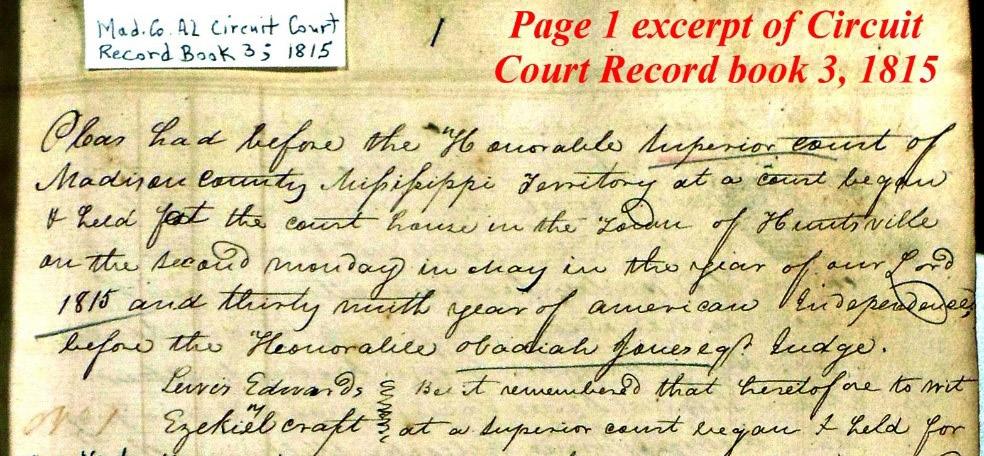 Mad. Co. AL Circuit Court
Record Book 3; 1815
1
Page 1 excerpt of Circuit
Court Record book 3, 1815
Pleas had before the Honorable Superior court of
Madison County Mississippi Territory at a court began
& held at the court house in the Town of Huntsville
on the second monday in May in the year of our Lord
1815 and thirty ninth year of american Independence
before the Honorable obadiah Jones esqr. Judge.
Lewis Edwards Be it remembered that heretofore to wit
No 1
vs
Ezekiel craft at a superior court began & held for